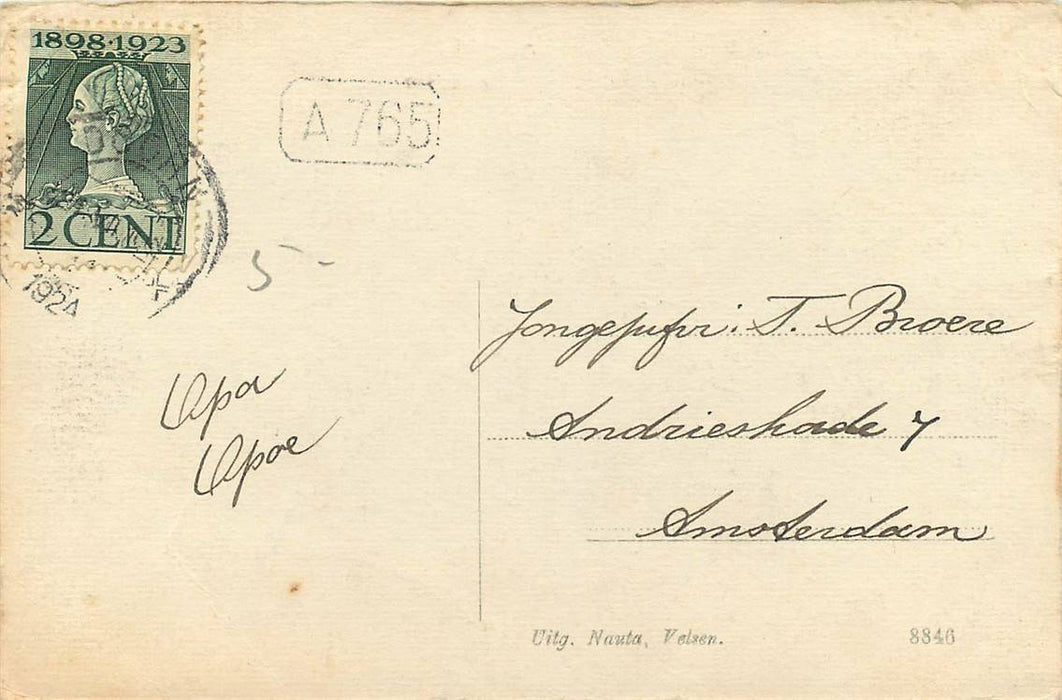 1898·1923
2 CENT
A 765
1924
5 -
Opa
Opoe
Jongejufr. T. Broere
Andrieskade 7
Amsterdam
Uitg. Nauta, Velsen.
8846